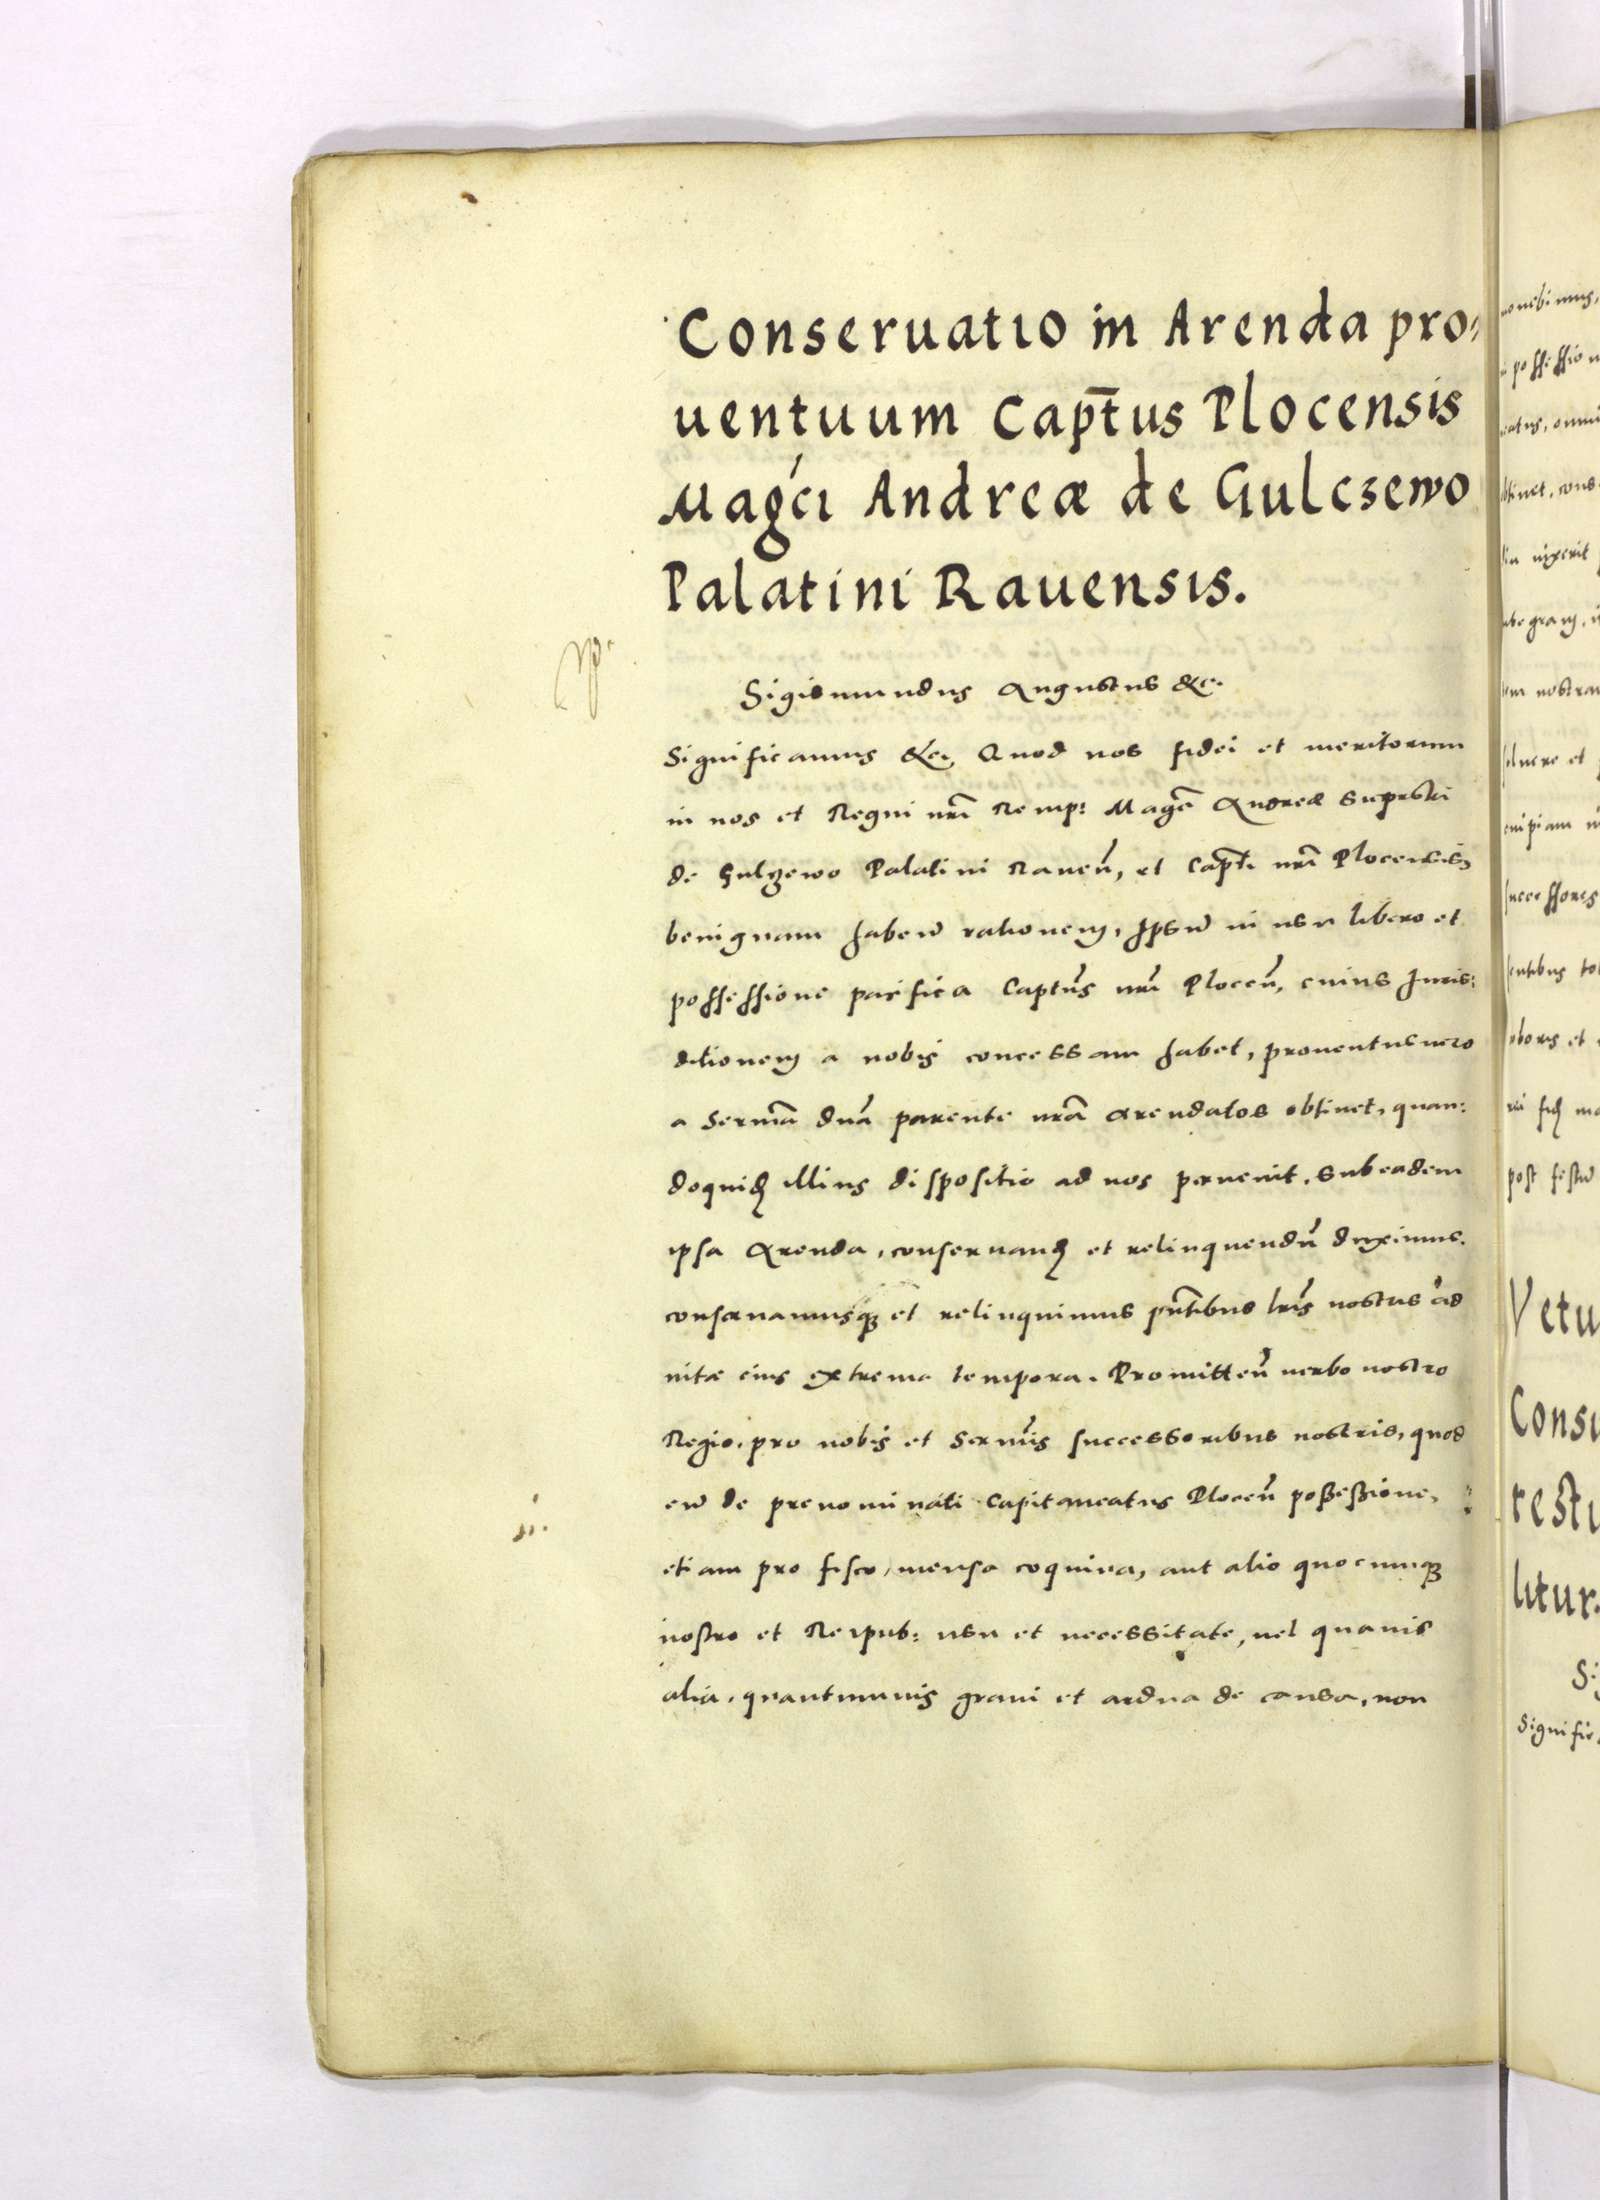 Conseruatio in Arenda pro⸗
uentuum Capt̄us Plocensis
Mag'ci Andreæ de Gulczewo
Palatini Rauensis.
Sigismundus Augustus &c.
Significamus &c. Quod nos fidei et meritorum
in nos et Regni nr̄i Remp: Magci Andreæ
de Gulczewo Palatini Rauen̄, et Capt̄i nr̄i Plocensis,
benignam habend̄ rationem, Ipsum in usu libero et
possessione pacifica Capt̄us nr̄i Plocen̄, cuius Iuris:
ditionem a nobis concessam habet, prouentus uero
a Serma dn̄a parente nr̄a arendatos obtinet, quan:
doquid̄ illius dispositio ad nos peruenit, sub eadem
ipsa Arenda, conseruand̄ et relinquendū duximus.
conseruamusq; et relinquimus pn̄tibus lr̄is nostris ad
uitæ eius extrema tempora. Promitten̄ uerbo nostro
Regio, pro nobis et Sermis successoribus nostris, quod
eum de prenominati Capitaneatus Plocen̄ possessione,
etiam pro fisco, mensa coquina, aut alio quocumq;
nostro et Reipub: usu et necessitate, uel quauis
alia, quantumuis graui et ardua de causa, non
onebimus,
possession
catus, omni
btinet, cons
diu uixerit
integram, i
tem nostram
soluere et
cuipiam
successores
sentibus
post festum
Vetu
Consu
restu
litur.
Si
Signific